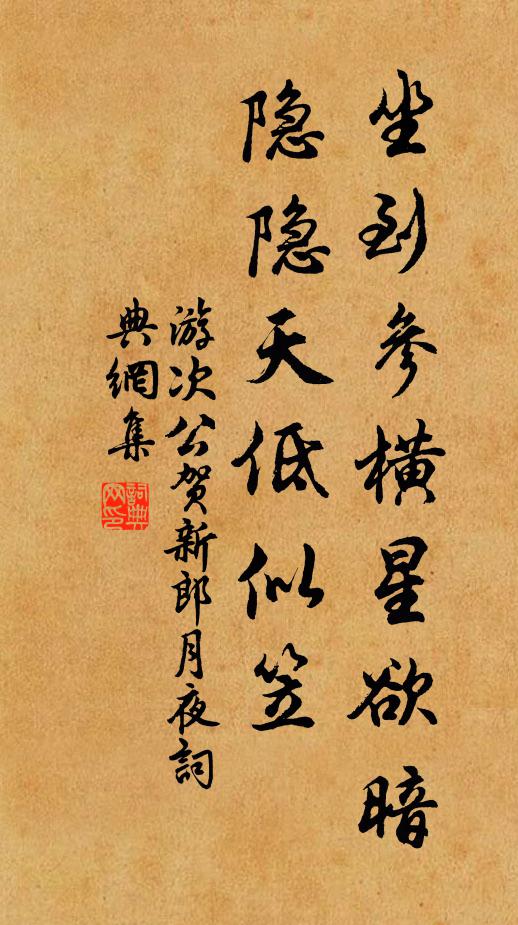 坐到参横星欲暗
隐隐天低似笠
游次公贺新郎月夜詞
典網集
詞典
网印